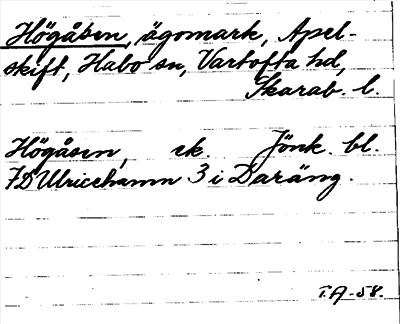 Högåsen, ägomark, Apel-
skift, Habo sn, Vartofta hd,
Skarab. l.
Högåsen, ek. Jönk. bl.
7D Ulricehamn 3 i Daräng.
T.A-58.